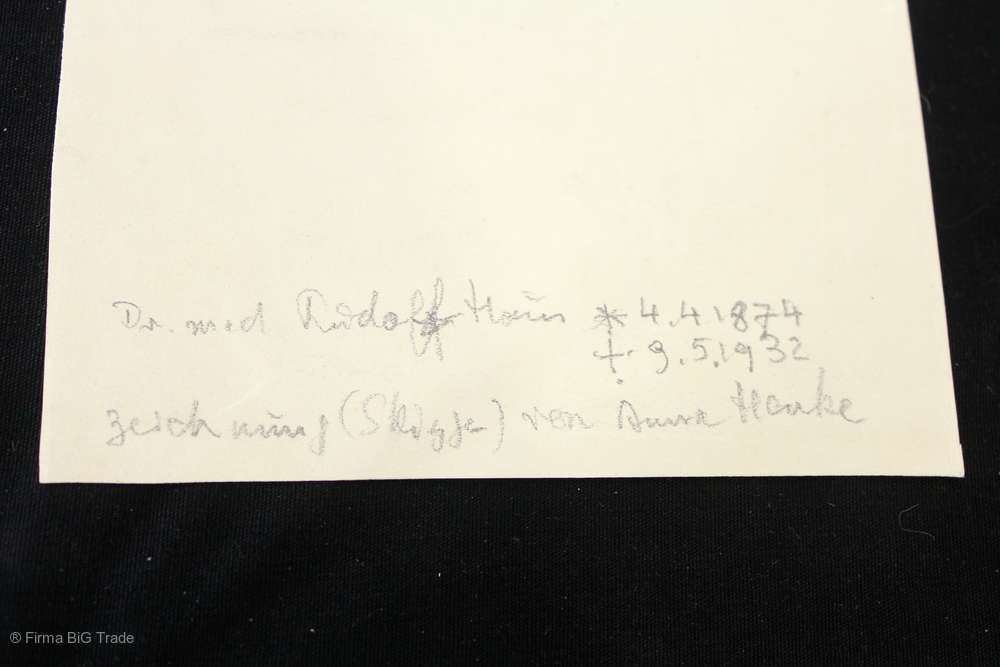 Dr. med Rudolf Haus * 4.4.1874
† 9.5.1932
Zeichnung (Skizze) von Anna Henke
® Firma BiG Trade